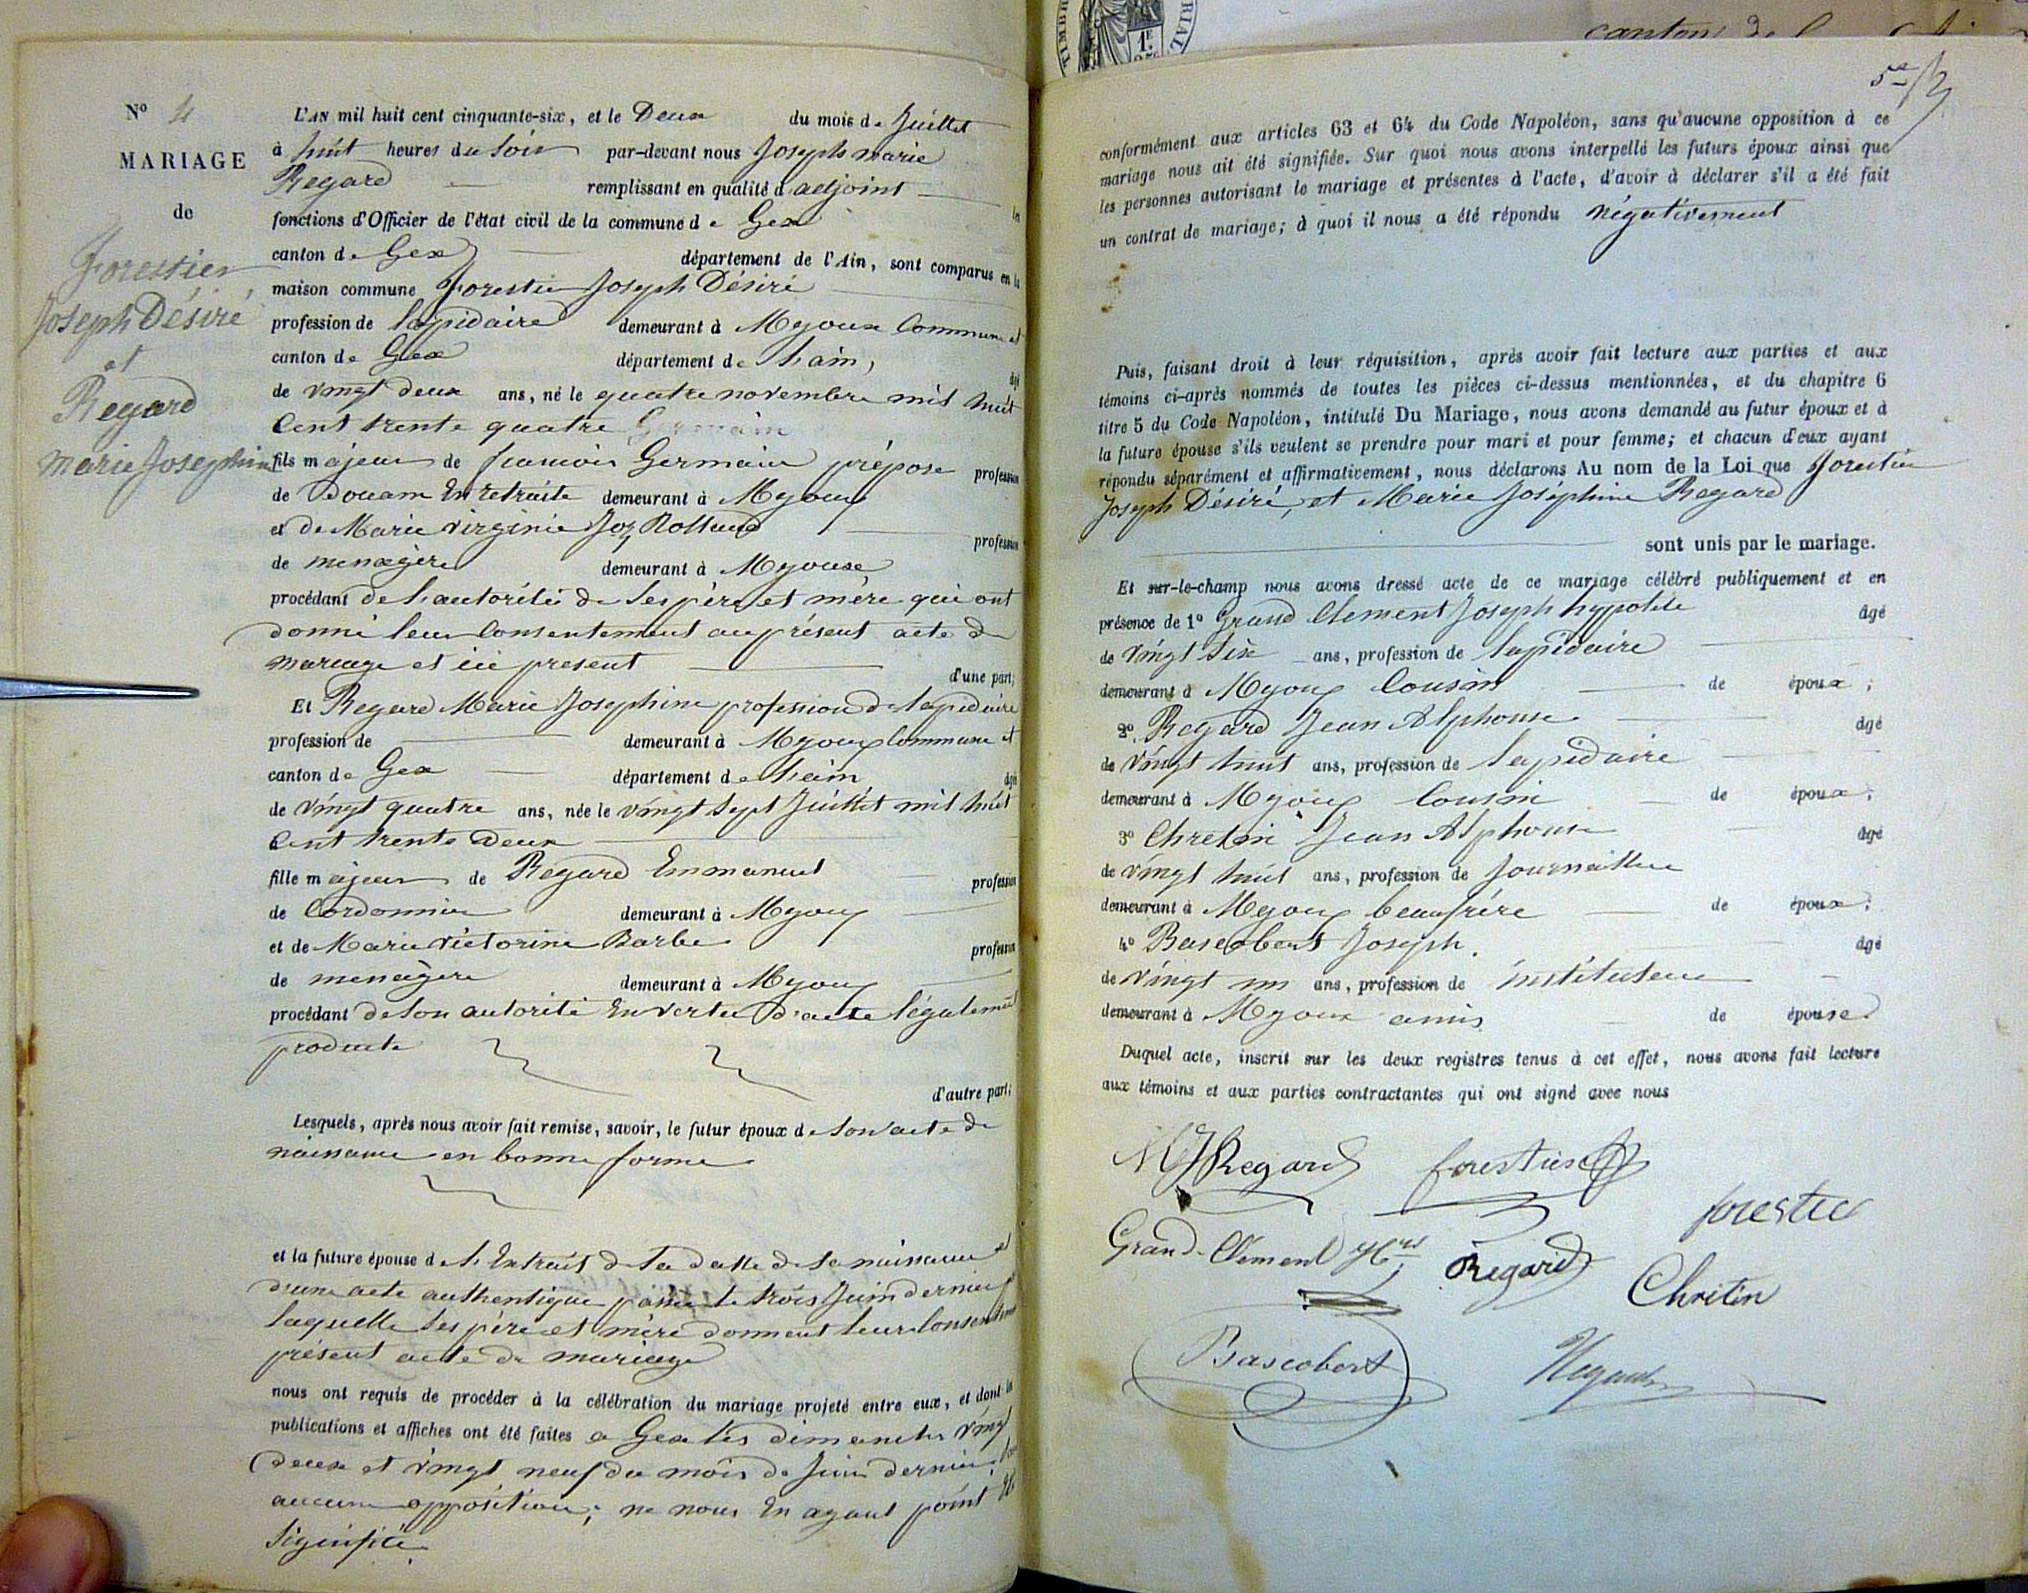 TIMBRE
RIAL
1F
canton de
N° 4
MARIAGE
de
Forestier
Joseph Désiré
et
Regard
Marie Josephine
L'AN mil huit cent cinquante-six, et le Deux du mois de Juillet
à huit heures du Soir par-devant nous Joseph Marie
Regard remplissant en qualité d'adjoint les
fonctions d'Officier de l'état civil de la commune de Gex
canton de Gex département de l'Ain, sont comparus en la
maison commune Forestier Joseph Désiré
profession de lapidaire demeurant à Mijoux Commune et
canton de Gex département de l'ain, âgé
de vingt deux ans, né le quatre novembre mil huit
Cent trente quatre Germain
fils majeur de francois Germain préposé profession
de Douane En retraite demeurant à Mijoux
et de Marie Virginie Joz Rolland profession
de menagère demeurant à Mijoux
procédant de l'autorité de Ses père et mère qui ont
donné leur Consentement au présent acte de
mariage et ici present d'une part;
Et Regard Marie Josephine profession de lapidaire
profession de demeurant à Mijoux Commune et
canton de Gex département de l'ain âgée
de vingt quatre ans, née le vingt Sept Juillet mil huit
Cent trente Deux
fille majeure de Regard Emmanuel profession
de Cordonnier demeurant à Mijoux
et de Marie Victorine Barbe profession
de menagère demeurant à Mijoux
procédant de Son autorité En Vertu d'acte légalement
produite
d'autre part;
Lesquels, après nous avoir fait remise, savoir, le futur époux de Son acte de
naissance en bonne forme
et la future épouse de l'Extrait de la datte de Sa naissance et
d'une acte authentique passé le trois Juin dernier
laquelle Ses père et mère donnent leur Consentement
présent acte de mariage
nous ont requis de procéder à la célébration du mariage projeté entre eux, et dont les
publications et affiches ont été faites a Gex les dimanches vingt
deux et vingt neuf du mois de Juin dernier
aucune opposition, ne nous En ayant point été
Signifiée
5e
conformément aux articles 63 et 64 du Code Napoléon, sans qu'aucune opposition à ce
mariage nous ait été signifiée. Sur quoi nous avons interpellé les futurs époux ainsi que
les personnes autorisant le mariage et présentes à l'acte, d'avoir à déclarer s'il a été fait
un contrat de mariage; à quoi il nous a été répondu négativement
Puis, faisant droit à leur réquisition, après avoir fait lecture aux parties et aux
témoins ci-après nommés de toutes les pièces ci-dessus mentionnées, et du chapitre 6
titre 5 du Code Napoléon, intitulé Du Mariage, nous avons demandé au futur époux et à
la future épouse s'ils veulent se prendre pour mari et pour femme; et chacun d'eux ayant
répondu séparément et affirmativement, nous déclarons Au nom de la Loi que Forestier
Joseph Désiré, et Marie Joséphine Regard
sont unis par le mariage.
Et sur-le-champ nous avons dressé acte de ce mariage célébré publiquement et en
présence de 1° Grand Clement Joseph hyppolite âgé
de vingt Six ans, profession de lapidaire
demeurant à Mijoux Cousin de époux;
2° Regard Jean Alphonse âgé
de Vingt huit ans, profession de lapidaire
demeurant à Mijoux Cousin de époux;
3° Chretin Jean Alphonse âgé
de vingt huit ans, profession de Journallier
demeurant à Mijoux beaufrère de époux;
4° Bascobert Joseph. âgé
de vingt un ans, profession de instituteur
demeurant à Mijoux amis de épouse.
Duquel acte, inscrit sur les deux registres tenus à cet effet, nous avons fait lecture
aux témoins et aux parties contractantes qui ont signé avec nous
MJ Regard forestier
forestier
Grand-Clément Hte Regard Chritin
Bascobert Regard